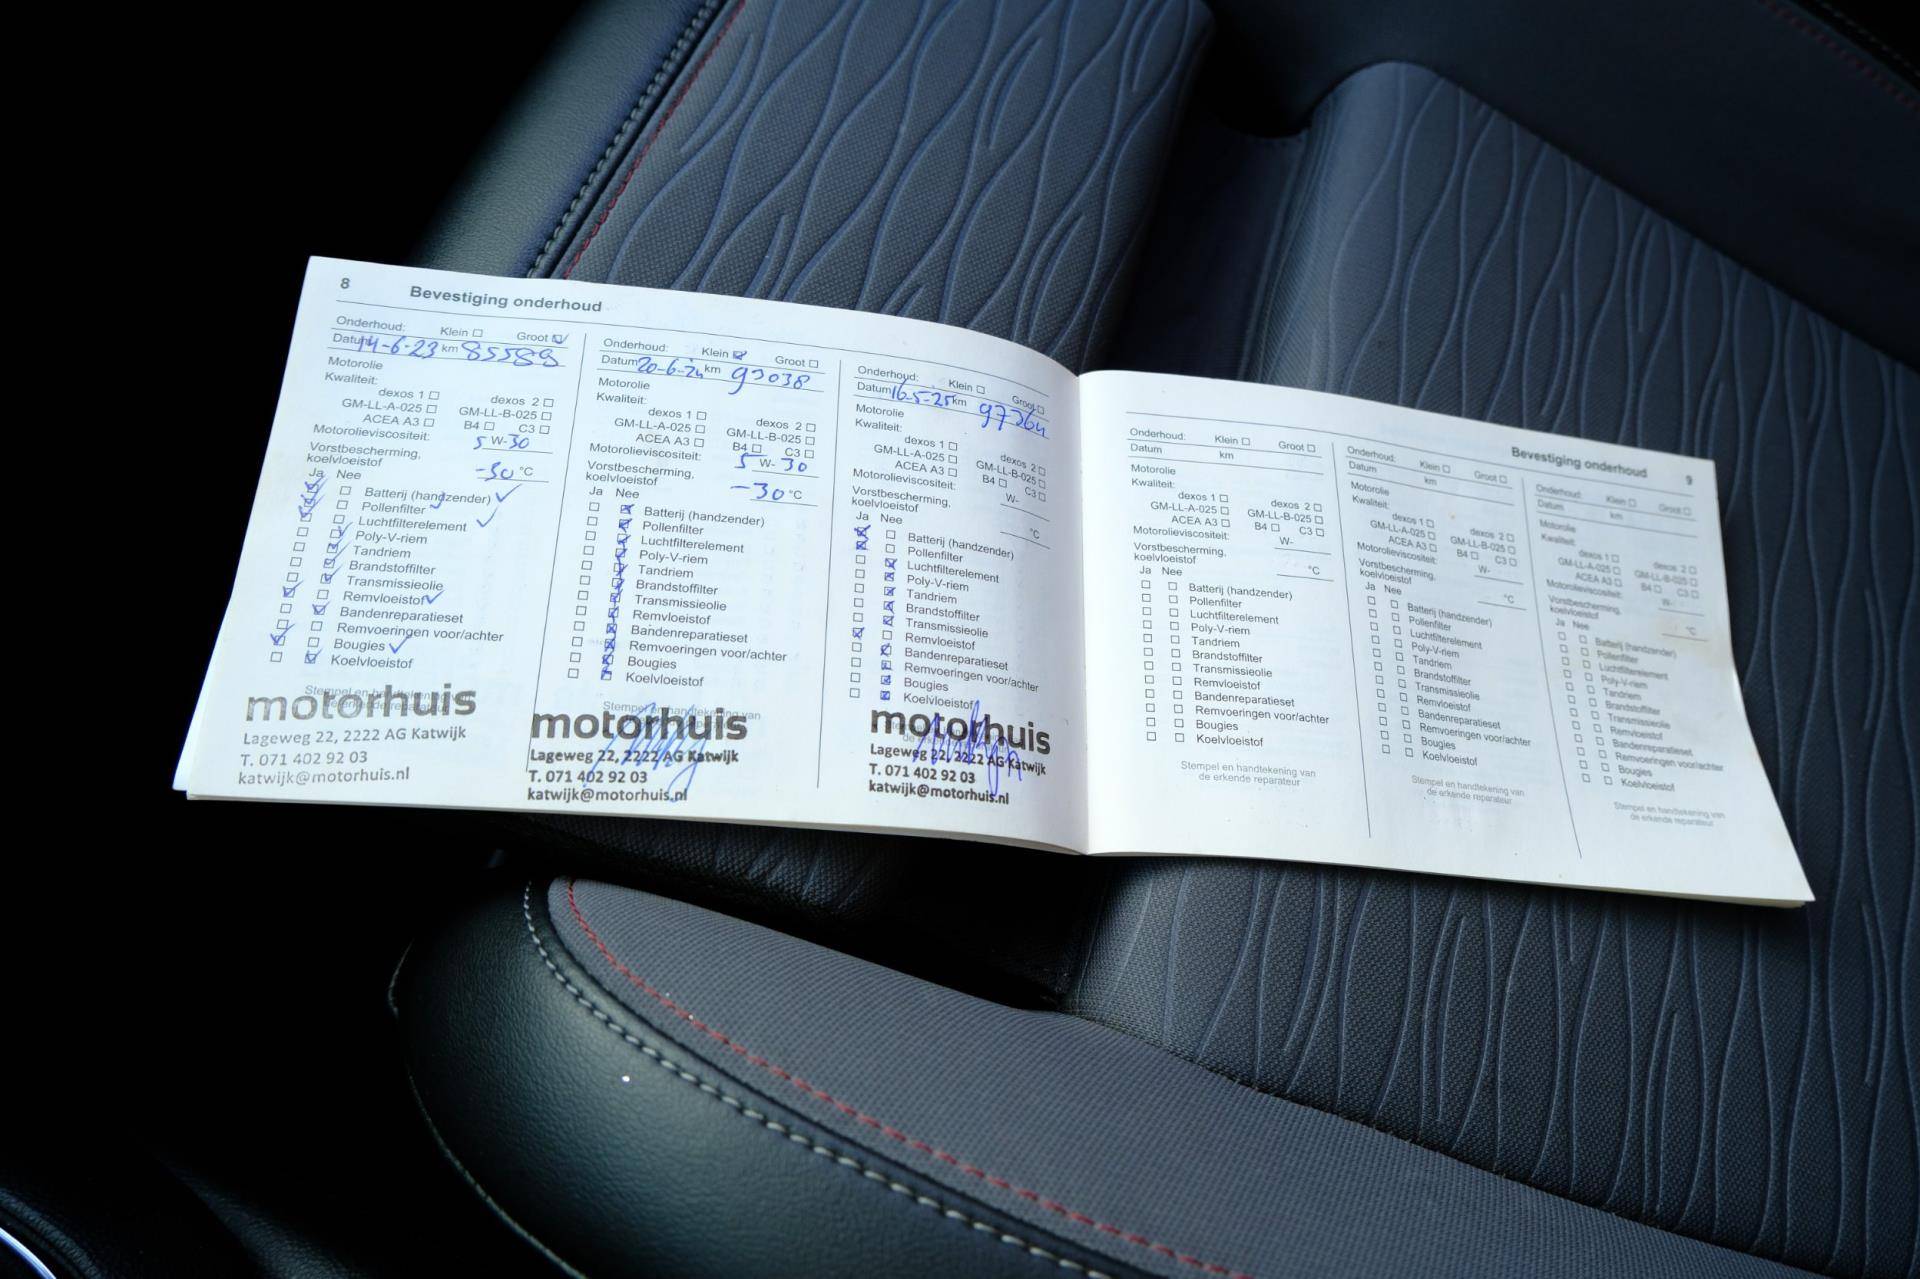 8 Bevestiging onderhoud
Onderhoud: Klein Groot
Datum 14-6-23 km 85589
Motorolie
Kwaliteit:
dexos 1 dexos 2
GM-LL-A-025 GM-LL-B-025
ACEA A3 B4 C3
Motorolieviscositeit: 5 W-30
Vorstbescherming,
koelvloeistof -30 °C
Ja Nee
Batterij (handzender)
Pollenfilter
Luchtfilterelement
Poly-V-riem
Tandriem
Brandstoffilter
Transmissieolie
Remvloeistof
Bandenreparatieset
Remvoeringen voor/achter
Bougies
Koelvloeistof
Stempel en handtekening van
de erkende reparateur
motorhuis
Lageweg 22, 2222 AG Katwijk
T. 071 402 92 03
katwijk@motorhuis.nl
Onderhoud: Klein Groot
Datum 20-6-24 km 93038
Motorolie
Kwaliteit:
dexos 1 dexos 2
GM-LL-A-025 GM-LL-B-025
ACEA A3 B4 C3
Motorolieviscositeit: 5 W-30
Vorstbescherming,
koelvloeistof -30 °C
Ja Nee
Batterij (handzender)
Pollenfilter
Luchtfilterelement
Poly-V-riem
Tandriem
Brandstoffilter
Transmissieolie
Remvloeistof
Bandenreparatieset
Remvoeringen voor/achter
Bougies
Koelvloeistof
Stempel en handtekening van
motorhuis
Lageweg 22, 2222 AG Katwijk
T. 071 402 92 03
katwijk@motorhuis.nl
Onderhoud: Klein Groot
Datum 16-5-25 km 97364
Motorolie
Kwaliteit:
dexos 1 dexos 2
GM-LL-A-025 GM-LL-B-025
ACEA A3 B4 C3
Motorolieviscositeit: W-
Vorstbescherming,
koelvloeistof °C
Ja Nee
Batterij (handzender)
Pollenfilter
Luchtfilterelement
Poly-V-riem
Tandriem
Brandstoffilter
Transmissieolie
Remvloeistof
Bandenreparatieset
Remvoeringen voor/achter
Bougies
Koelvloeistof
motorhuis
Lageweg 22, 2222 AG Katwijk
T. 071 402 92 03
katwijk@motorhuis.nl
Bevestiging onderhoud 9
Onderhoud: Klein Groot
Datum km
Motorolie
Kwaliteit:
dexos 1 dexos 2
GM-LL-A-025 GM-LL-B-025
ACEA A3 B4 C3
Motorolieviscositeit: W-
Vorstbescherming,
koelvloeistof °C
Ja Nee
Batterij (handzender)
Pollenfilter
Luchtfilterelement
Poly-V-riem
Tandriem
Brandstoffilter
Transmissieolie
Remvloeistof
Bandenreparatieset
Remvoeringen voor/achter
Bougies
Koelvloeistof
Stempel en handtekening van
de erkende reparateur
Onderhoud: Klein Groot
Datum km
Motorolie
Kwaliteit:
dexos 1 dexos 2
GM-LL-A-025 GM-LL-B-025
ACEA A3 B4 C3
Motorolieviscositeit: W-
Vorstbescherming,
koelvloeistof °C
Ja Nee
Batterij (handzender)
Pollenfilter
Luchtfilterelement
Poly-V-riem
Tandriem
Brandstoffilter
Transmissieolie
Remvloeistof
Bandenreparatieset
Remvoeringen voor/achter
Bougies
Koelvloeistof
Stempel en handtekening van
de erkende reparateur
Onderhoud: Klein Groot
Datum km
Motorolie
Kwaliteit:
dexos 1 dexos 2
GM-LL-A-025 GM-LL-B-025
ACEA A3 B4 C3
Motorolieviscositeit: W-
Vorstbescherming,
koelvloeistof °C
Ja Nee
Batterij (handzender)
Pollenfilter
Luchtfilterelement
Poly-V-riem
Tandriem
Brandstoffilter
Transmissieolie
Remvloeistof
Bandenreparatieset
Remvoeringen voor/achter
Bougies
Koelvloeistof
Stempel en handtekening van
de erkende reparateur